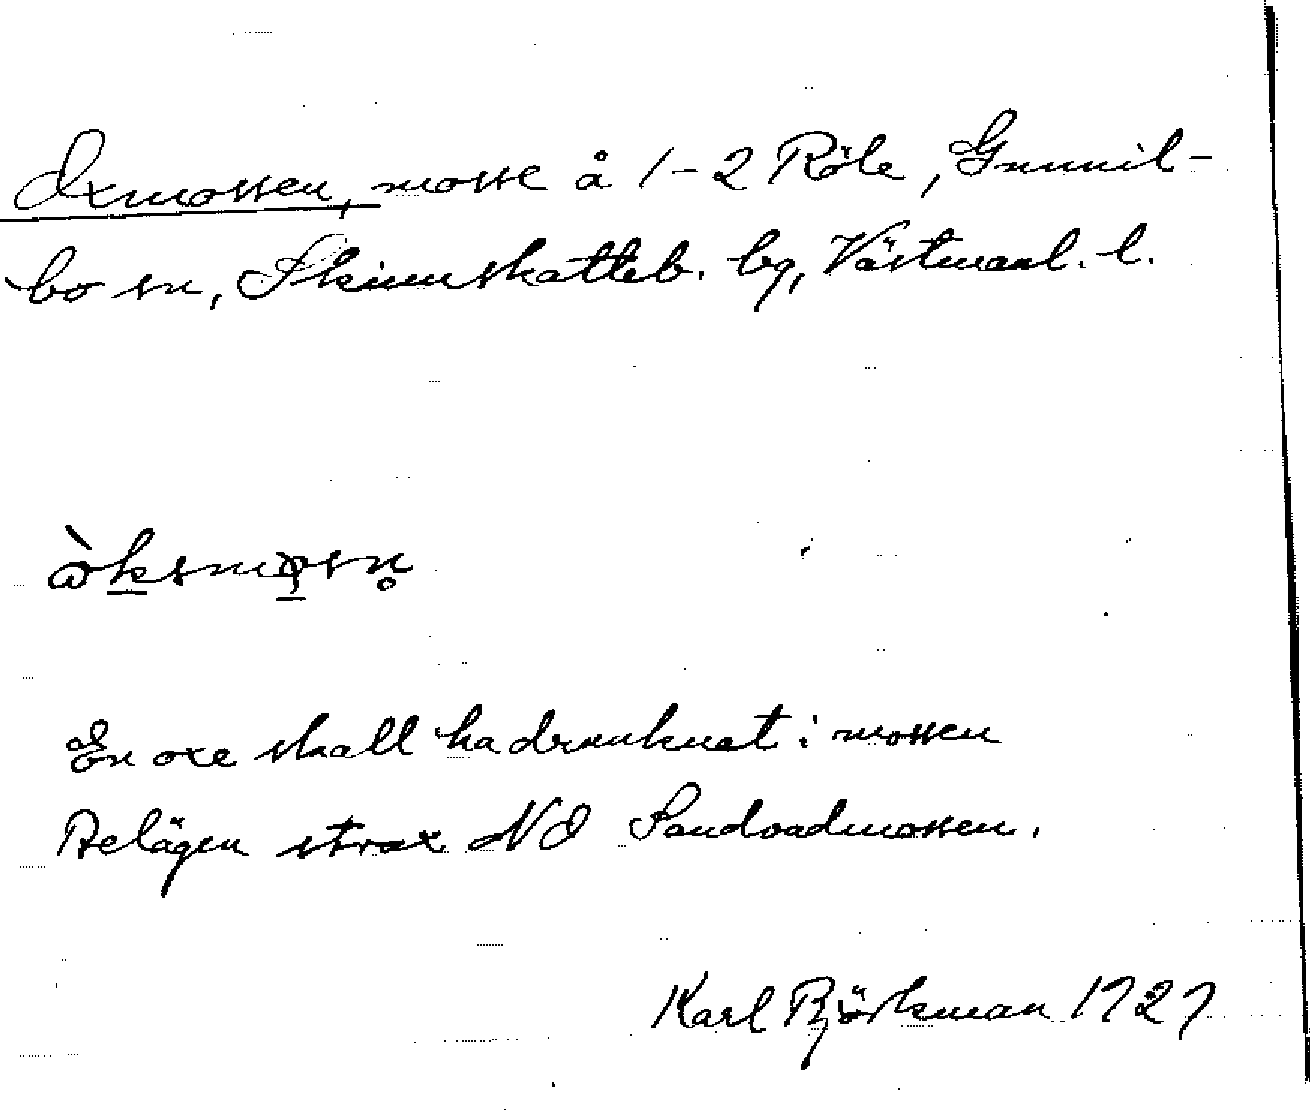 Oxmossen, mosse å 1-2 Röle, Gunnil-
bo sn, Skinnskatteb. bg, Västmanl. l.
En oxe skall ha drunknat i mossen
Belägen strax NO Sandvadmossen.
Karl Björkman 1927